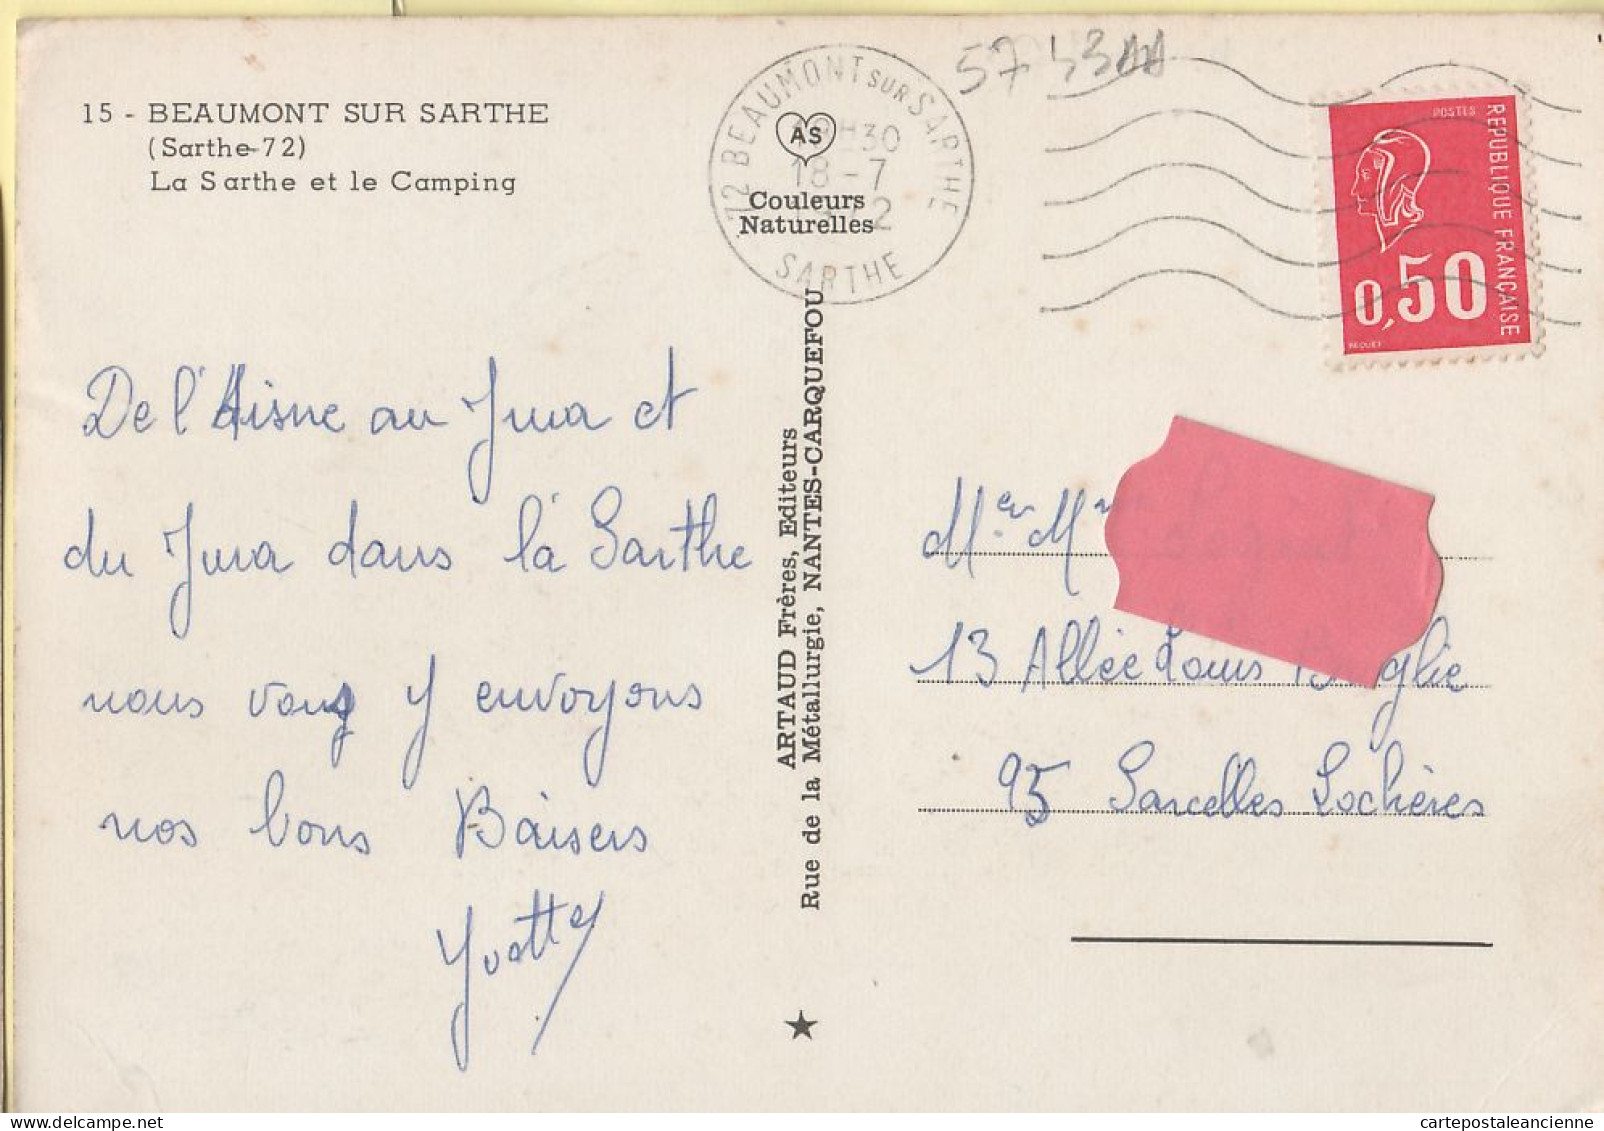 15 - BEAUMONT SUR SARTHE
(Sarthe-72)
La Sarthe et le Camping
De l'Aisne au Jura et
du Jura dans la Sarthe
nous vous y envoyons
nos bons Baisers
Yvette
72 BEAUMONT SUR SARTHE
18-7
SARTHE
AS
Couleurs
Naturelles
ARTAUD Frères, Editeurs
Rue de la Métallurgie, NANTES-CARQUEFOU
POSTES
REPUBLIQUE FRANÇAISE
0,50
BEQUET
Mr et Mme
13 Allée Louis
95 Sarcelles Lochères
cartepostaleancienne